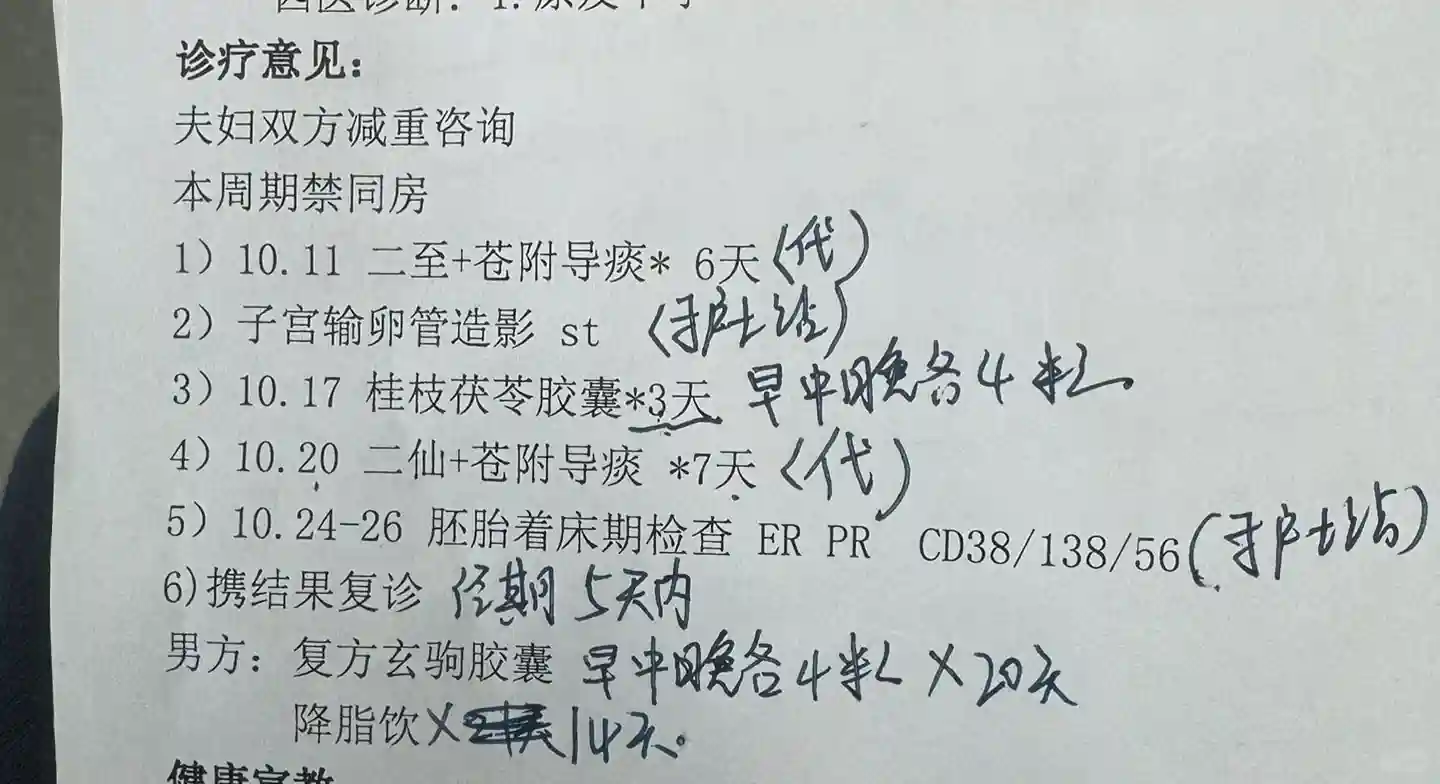 西医诊断：1.原发不孕
诊疗意见：
夫妇双方减重咨询
本周期禁同房
1）10.11 二至+苍附导痰* 6天（代）
2）子宫输卵管造影 st （护士站）
3）10.17 桂枝茯苓胶囊*3天 早中晚各4粒
4）10.20 二仙+苍附导痰 *7天（代）
5）10.24-26 胚胎着床期检查 ER PR CD38/138/56（护士站）
6)携结果复诊 经期5天内
男方：复方玄驹胶囊 早中晚各4粒 X 20天
降脂饮X 14天。
健康宣教